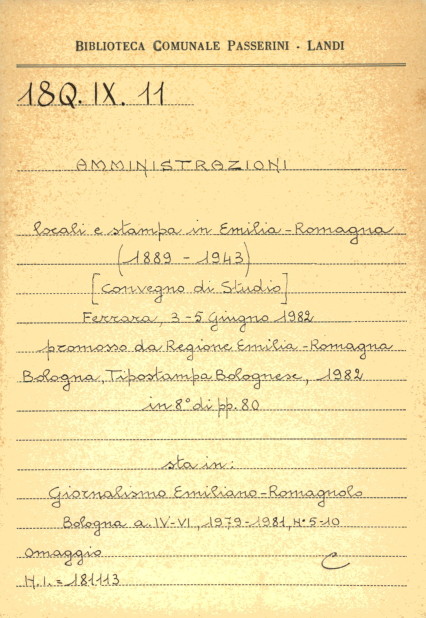 BIBLIOTECA COMUNALE PASSERINI - LANDI
18Q. IX. 11
AMMINISTRAZIONI
locali e stampa in Emilia-Romagna
(1889 - 1943)
[Convegno di Studio]
Ferrara, 3-5 Giugno 1982
promosso da Regione Emilia-Romagna
Bologna, Tipostampa Bolognese, 1982
in 8° di pp. 80
sta in:
Giornalismo Emiliano-Romagnolo
Bologna a. IV-VI, 1979-1981, N° 5-10
Omaggio
C
N.I. = 181113